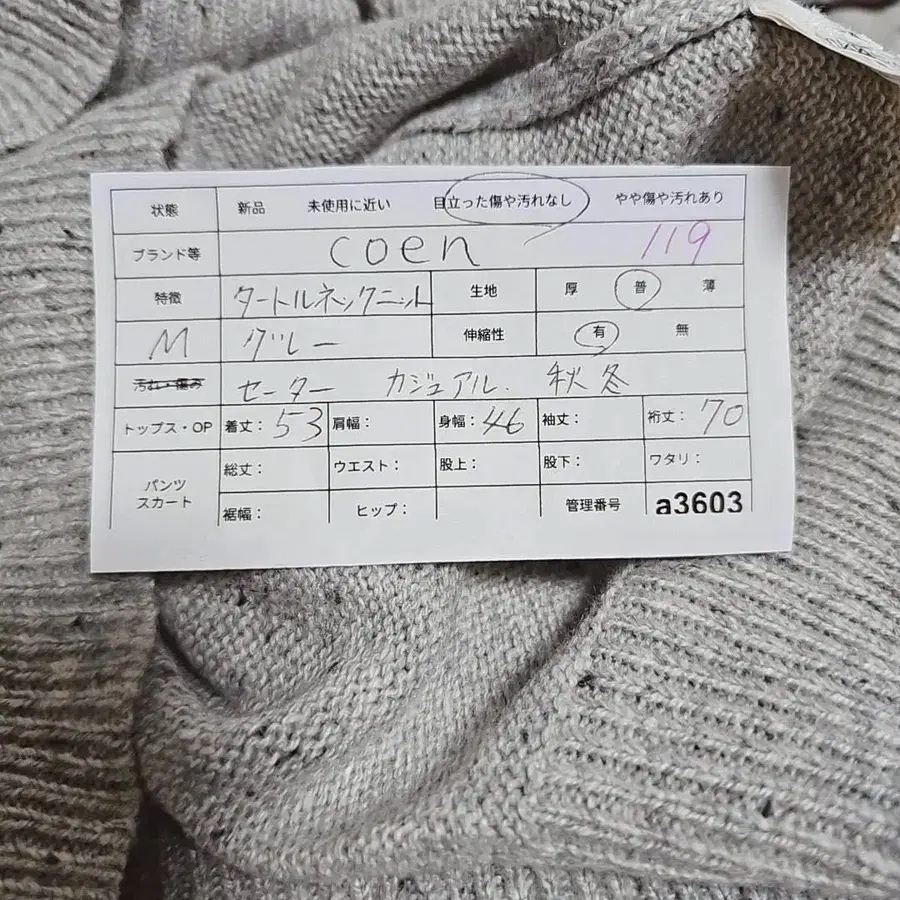 状態 新品 未使用に近い 目立った傷や汚れなし やや傷や汚れあり
ブランド等 coen 119
特徴 タートルネックニット 生地 厚 普 薄
M グレー 伸縮性 有 無
汚れ・傷み セーター カジュアル. 秋冬
トップス・OP 着丈: 53 肩幅: 身幅: 46 袖丈: 裄丈: 70
パンツ スカート 総丈: ウエスト: 股上: 股下: ワタリ:
裾幅: ヒップ: 管理番号 a3603